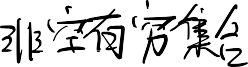 非空有穷集合